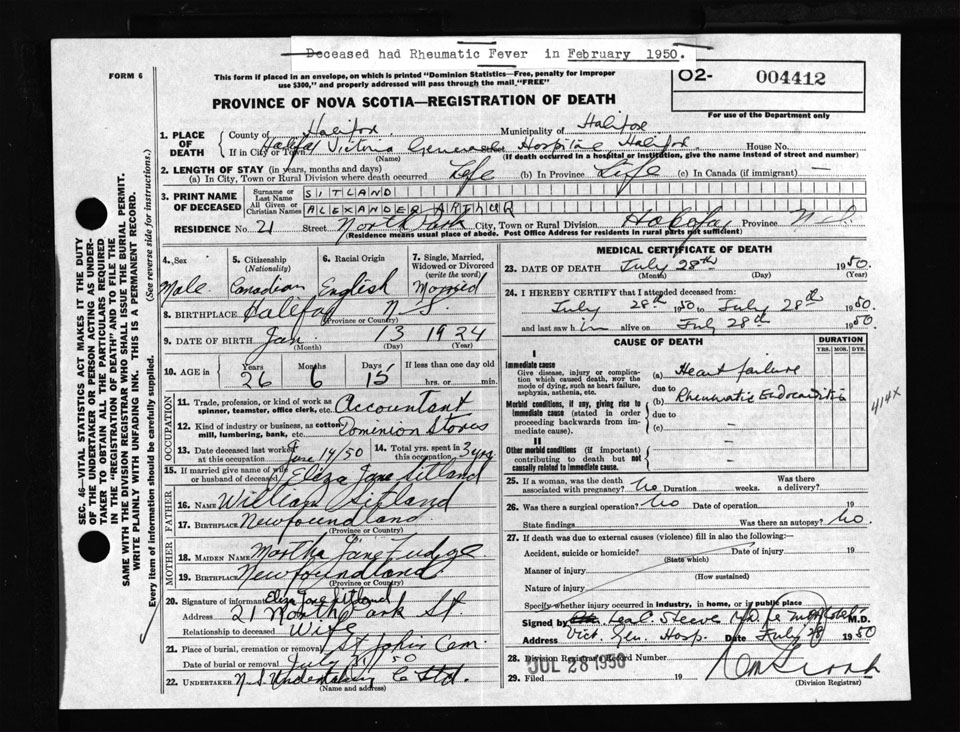 Deceased had Rheumatic Fever in February 1950.
FORM 6
This form if placed in an envelope, on which is printed "Dominion Statistics—Free, penalty for improper
use $300," and properly addressed will pass through the mail "FREE"
O2- 004412
For use of the Department only
PROVINCE OF NOVA SCOTIA—REGISTRATION OF DEATH
1. PLACE OF DEATH
County of Halifax. Municipality of Halifax
If in City or Town Halifax Victoria General Hospital Halifax. House No.
(Name) (If death occurred in a hospital or institution, give the name instead of street and number)
2. LENGTH OF STAY (in years, months and days)
(a) In City, Town or Rural Division where death occurred Life (b) In Province Life (c) In Canada (if immigrant) —
3. PRINT NAME OF DECEASED
Surname or Last Name SITLAND
All Given or Christian Names ALEXANDER ARTHUR
RESIDENCE No. 21 Street North Park City, Town or Rural Division Halifax Province N.S.
(Residence means usual place of abode. Post Office Address for residents in rural parts not sufficient)
4. Sex Male
5. Citizenship (Nationality) Canadian
6. Racial Origin English
7. Single, Married, Widowed or Divorced (write the word) Married
8. BIRTHPLACE Halifax N.S.
(Province or Country)
9. DATE OF BIRTH Jan. 13 1924
(Month) (Day) (Year)
10. AGE in Years 26 Months 6 Days 15 If less than one day old
hrs. or min.
OCCUPATION
11. Trade, profession, or kind of work as spinner, teamster, office clerk, etc. Accountant
12. Kind of industry or business, as cotton mill, lumbering, bank, etc. Dominion Stores
13. Date deceased last worked at this occupation June 14/50
14. Total yrs. spent in this occupation 3 yrs
15. If married give name of wife or husband of deceased Eliza Jane Sitland
FATHER
16. NAME William Sitland
17. BIRTHPLACE Newfoundland
(Province or Country)
MOTHER
18. MAIDEN NAME Martha Jane Fudge
19. BIRTHPLACE Newfoundland
(Province or Country)
20. Signature of informant Eliza Jane Sitland
Address 21 North Park St
Relationship to deceased Wife
21. Place of burial, cremation or removal St Johns Cem
Date of burial or removal July 50
22. UNDERTAKER N.S. Undertaking Co Ltd.
(Name and address)
MEDICAL CERTIFICATE OF DEATH
23. DATE OF DEATH July 28th 1950.
(Month) (Day) (Year)
24. I HEREBY CERTIFY that I attended deceased from:
July 28th 1950 to July 28th 1950.
and last saw him alive on July 28th 1950
CAUSE OF DEATH
DURATION
YRS. MOS. DYS.
I
Immediate cause
Give disease, injury or complication which caused death, NOT the mode of dying, such as heart failure, asphyxia, asthenia, etc.
(a) Heart failure
due to
(b) Rheumatic Endocarditis
414X
Morbid conditions, if any, giving rise to immediate cause (stated in order proceeding backwards from immediate cause).
due to
(c) —
II
Other morbid conditions (if important) contributing to death but not causally related to immediate cause.
—
25. If a woman, was the death associated with pregnancy? No Duration weeks. Was there a delivery?
26. Was there a surgical operation? No Date of operation 19
State findings Was there an autopsy? No.
27. If death was due to external causes (violence) fill in also the following:—
Accident, suicide or homicide? Date of injury 19
(State which)
Manner of injury
(How sustained)
Nature of injury
Specify whether injury occurred in industry, in home, or in public place
Signed by M.D.
Address Vict. Gen. Hosp. Date July 28 1950
28. Division Registrar's Record Number
JUL 28 1950
29. Filed 19
(Division Registrar)
SEC. 46—VITAL STATISTICS ACT MAKES IT THE DUTY
OF THE UNDERTAKER OR PERSON ACTING AS UNDER-
TAKER TO OBTAIN ALL THE PARTICULARS REQUIRED
IN THE "REGISTRATION OF DEATH" AND TO FILE THE
SAME WITH THE DIVISION REGISTRAR WHO SHALL ISSUE THE BURIAL PERMIT.
WRITE PLAINLY WITH UNFADING INK. THIS IS A PERMANENT RECORD.
Every item of information should be carefully supplied. (See reverse side for instructions.)